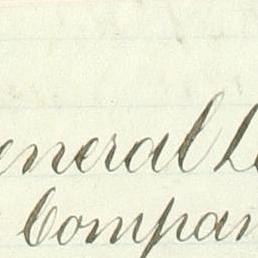 eneral L
Compan